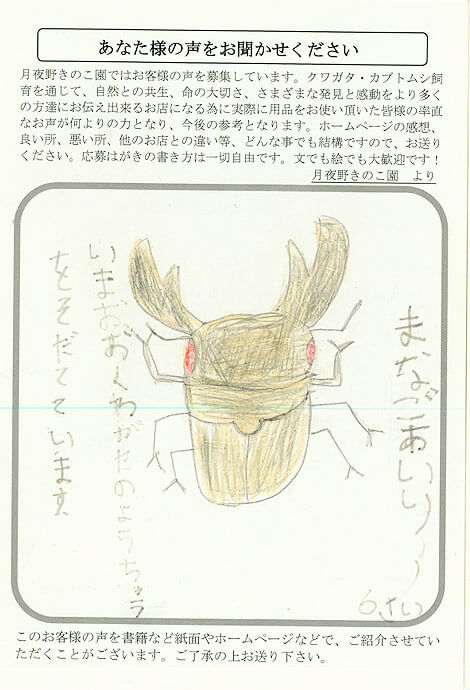 あなた様の声をお聞かせください
月夜野きのこ園ではお客様の声を募集しています。クワガタ・カブトムシ飼
育を通じて、自然との共生、命の大切さ、さまざまな発見と感動をより多く
の方達にお伝え出来るお店になる為に実際に用品をお使い頂いた皆様の率直
なお声が何よりの力となり、今後の参考となります。ホームページの感想、
良い所、悪い所、他のお店との違い等、どんな事でも結構ですので、お送り
ください。応募はがきの書き方は一切自由です。文でも絵でも大歓迎です！
月夜野きのこ園　より
6さい
いまおおくわがたのようちゅう
をそだてています
このお客様の声を書籍など紙面やホームページなどで、ご紹介させてい
ただくことがございます。ご了承の上お送り下さい。